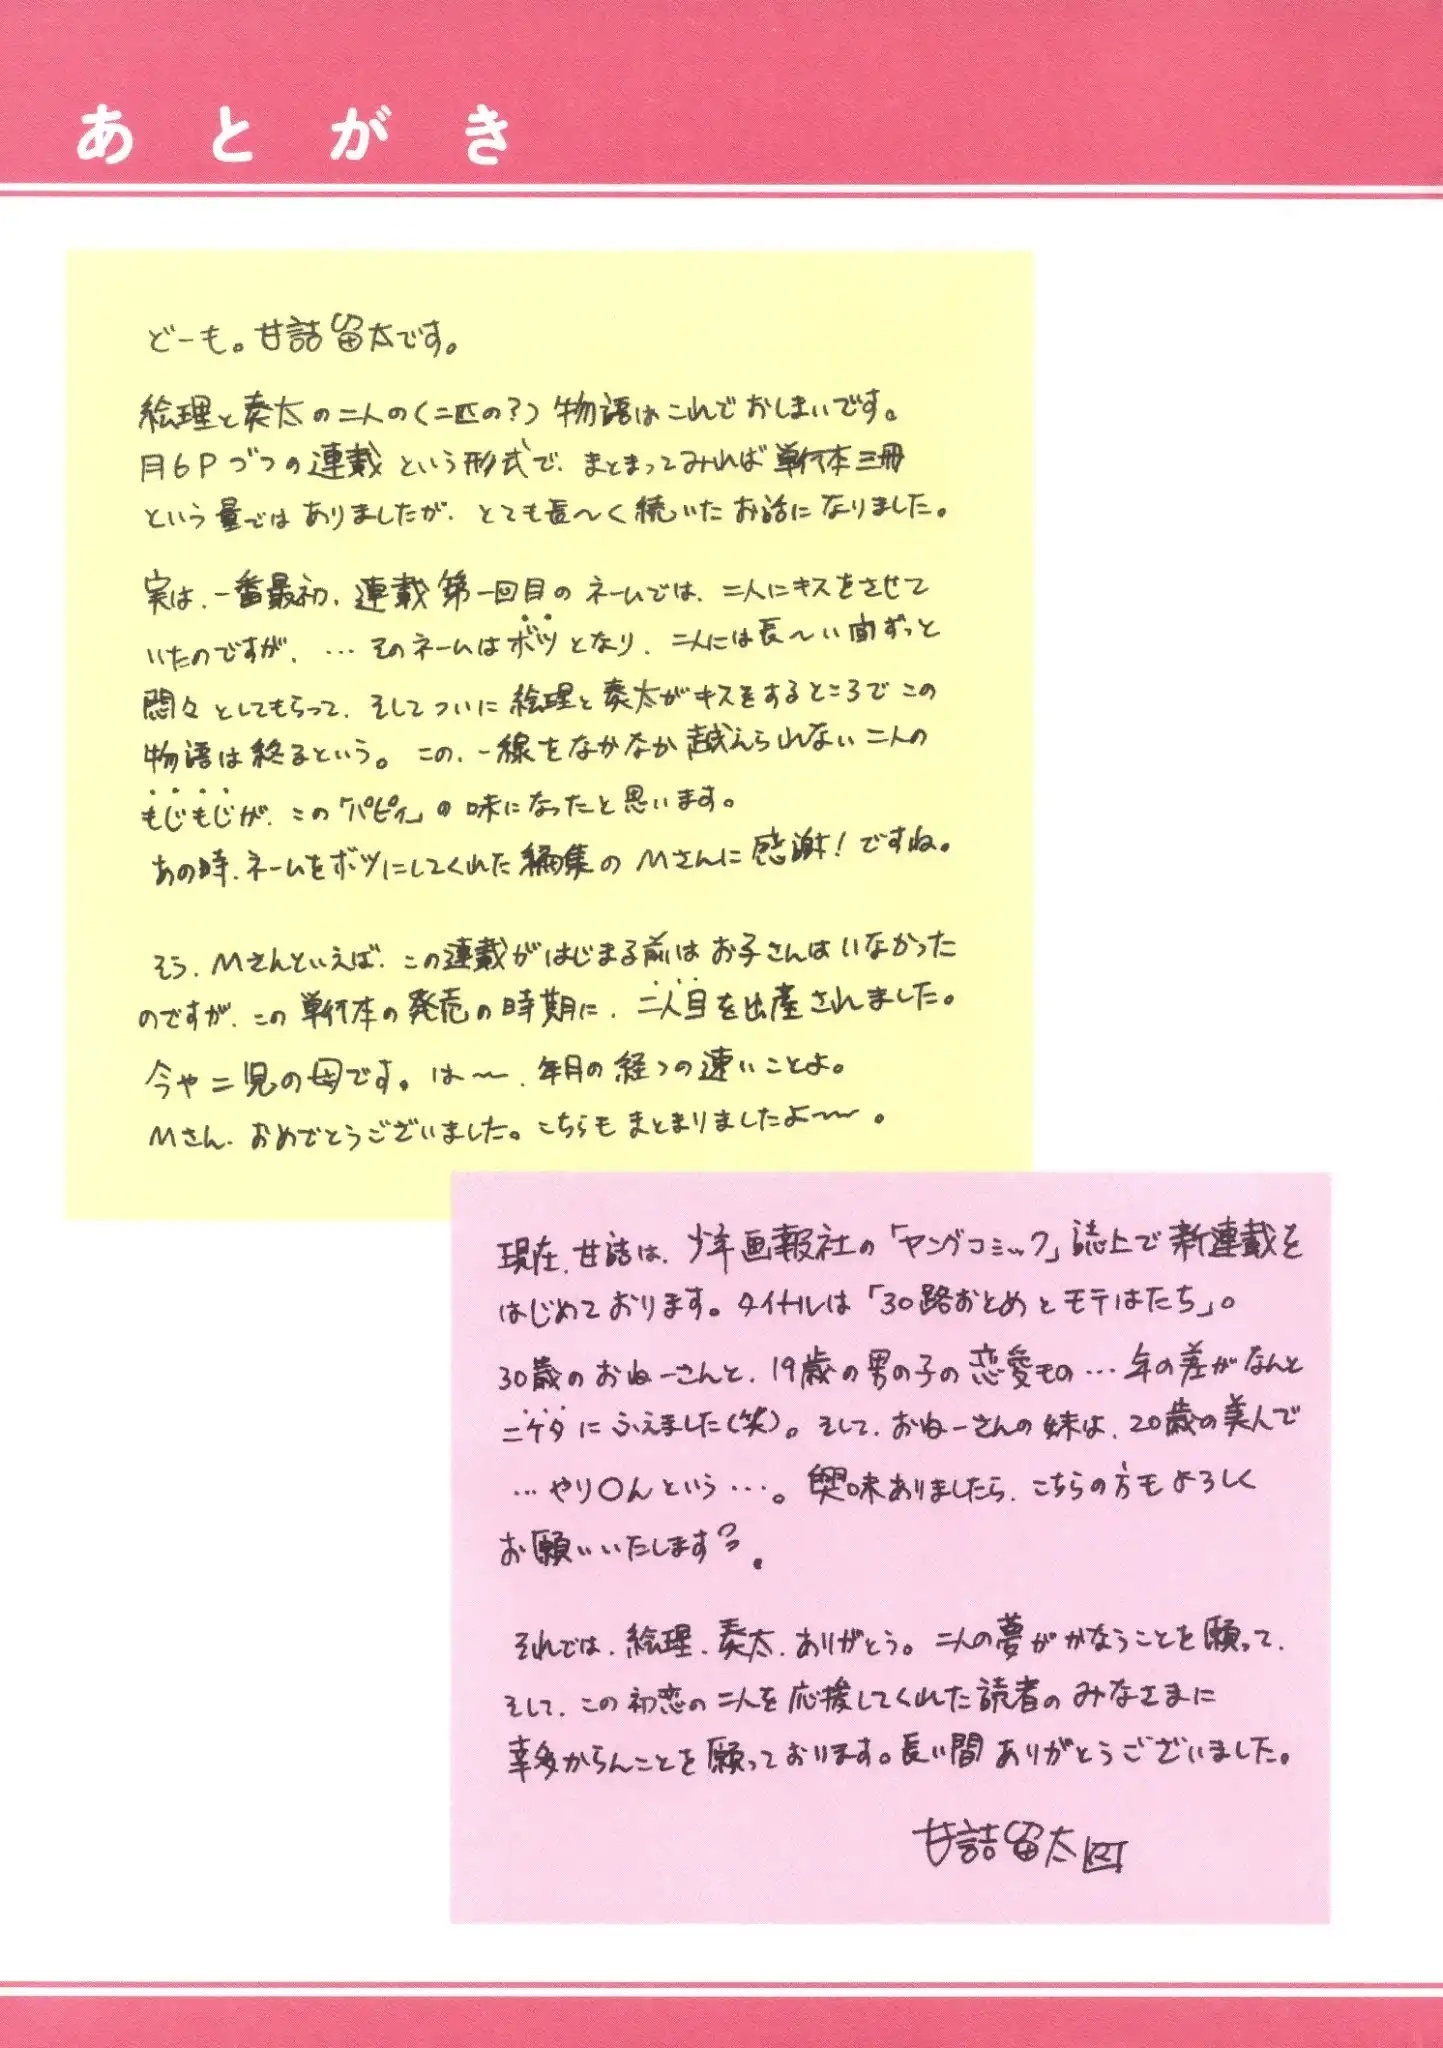 あとがき
どーも。甘詰留太です。
絵理と奏太の二人の(二匹の?)物語はこれでおしまいです。
月6Pづつの連載という形式で、まとまってみれば単行本三冊
という量ではありましたが、とても長〜く続いたお話になりました。
実は、一番最初、連載第一回目のネームでは、二人にキスをさせて
いたのですが、…そのネームはボツとなり、二人には長〜い間ずっと
悶々としてもらって、そしてついに絵理と奏太がキスをするところでこの
物語は終るという。この、一線をなかなか越えられない二人の
もじもじが、この「パピィ」の味になったと思います。
あの時、ネームをボツにしてくれた編集のMさんに感謝!ですね。
そう、Mさんといえば、この連載がはじまる前はお子さんはいなかった
のですが、この単行本の発売の時期に、二人目を出産されました。
今や二児の母です。は〜、年月の経つの速いことよ。
Mさん、おめでとうございました。こちらもまとまりましたよ〜。
現在、甘詰は、少年画報社の「ヤングコミック」誌上で新連載を
はじめております。タイトルは「30路おとめとモテはたち」。
30歳のおねーさんと、19歳の男の子の恋愛もの…年の差がなんと
ニケタにふえました(笑)。そして、おねーさんの妹は、20歳の美人で
…やり〇んという…。興味ありましたら、こちらの方もよろしく
お願いいたします。
それでは、絵理、奏太、ありがとう。二人の夢がかなうことを願って、
そして、この初恋の二人を応援してくれた読者のみなさまに
幸多からんことを願っております。長い間ありがとうございました。
甘詰留太